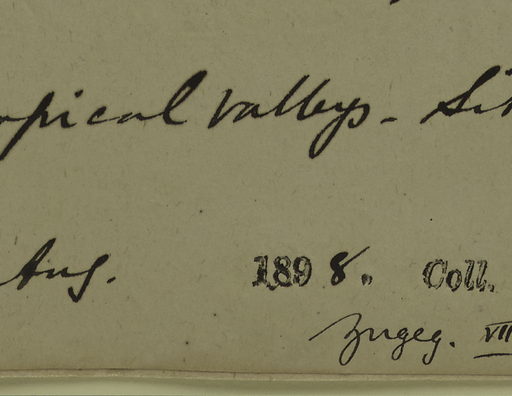 opical valleys - Sik
Aug. 1898. Coll.
Zugeg. VII